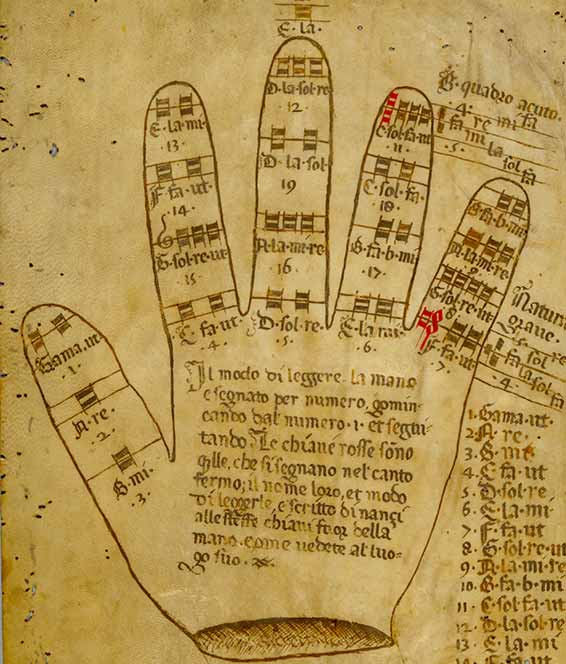 E·la·
E·la·mi·
13·
F·fa·ut·
·14·
G·sol·re·ut·
15·
C·fa·ut·
·4·
D·la·sol·re
·12·
D·la·sol·
19
A·la·mi·re·
16·
D·sol·re·
·5·
C·sol·fa·ut
·11·
C·sol·fa·
·18·
B·fa·b·mi·
·17·
E·la·mi·
·6·
B·fa·b·mi·
A·la·mi·re·
G·sol·re·ut·
8·
F·fa·ut·
·7·
Gama·ut·
·1·
A·re·
·2·
B·mi·
·3·
B·quadro acuto·
·4· fa
fa re mi
fa mi la sol fa
·5·
Natura
grave·
sol re
la sol fa
·4·
Il modo di leggere la mano
e segnato per numero, gomin
cando dal numero ·1· et segui
tando· Le chiave rosse sono
q̃lle, che si segnano nel canto
fermo; il nome loro, et modo
di leggerle, e scritto di nanzi
alle stesse chiavi fuor della
mano· come vedete al luo-
go suo·
1·Gama·ut·
2·A·re·
3·B·mi·
4·C·fa·ut
5·D·sol·re
6·E·la·mi
7·F·fa·ut
8·G·sol·re·ut
9·A·la·mi·re
10·B·fa·b·mi
11·C·sol·fa·ut
12·D·la·sol·re
13·E·la·mi
F·fa·ut